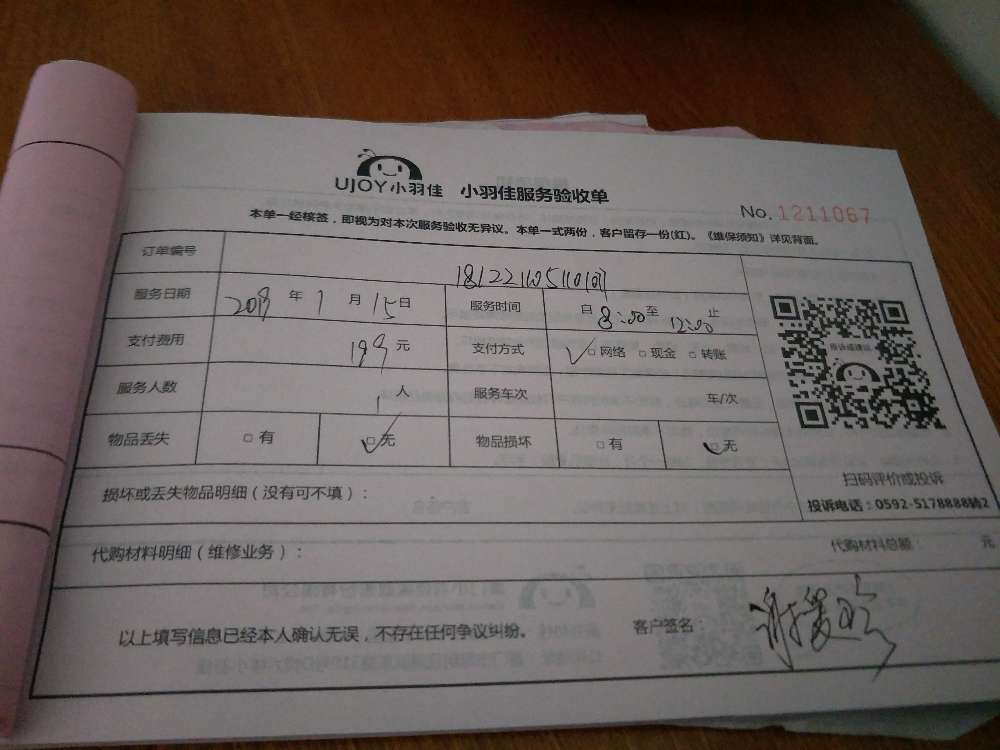 UJOY小羽佳 小羽佳服务验收单
No. 1211067
本单一经核签，即视为对本次服务验收无异议。本单一式两份，客户留存一份(红)。《维保须知》详见背面。
订单编号
服务日期 2019 年 1 月 15 日 服务时间 自 8:00 至 12:00 止
支付费用 199 元 支付方式 ✓ □ 网络 □ 现金 □ 转账
服务人数 1 人 服务车次 车/次
物品丢失 □ 有 ☑ 无 物品损坏 □ 有 ☑ 无
投诉或建议
扫码评价或投诉
投诉电话：0592-5178888转2
损坏或丢失物品明细（没有可不填）：
代购材料明细（维修业务）： 代购材料总额： 元
以上填写信息已经本人确认无误，不存在任何争议纠纷。 客户签名：